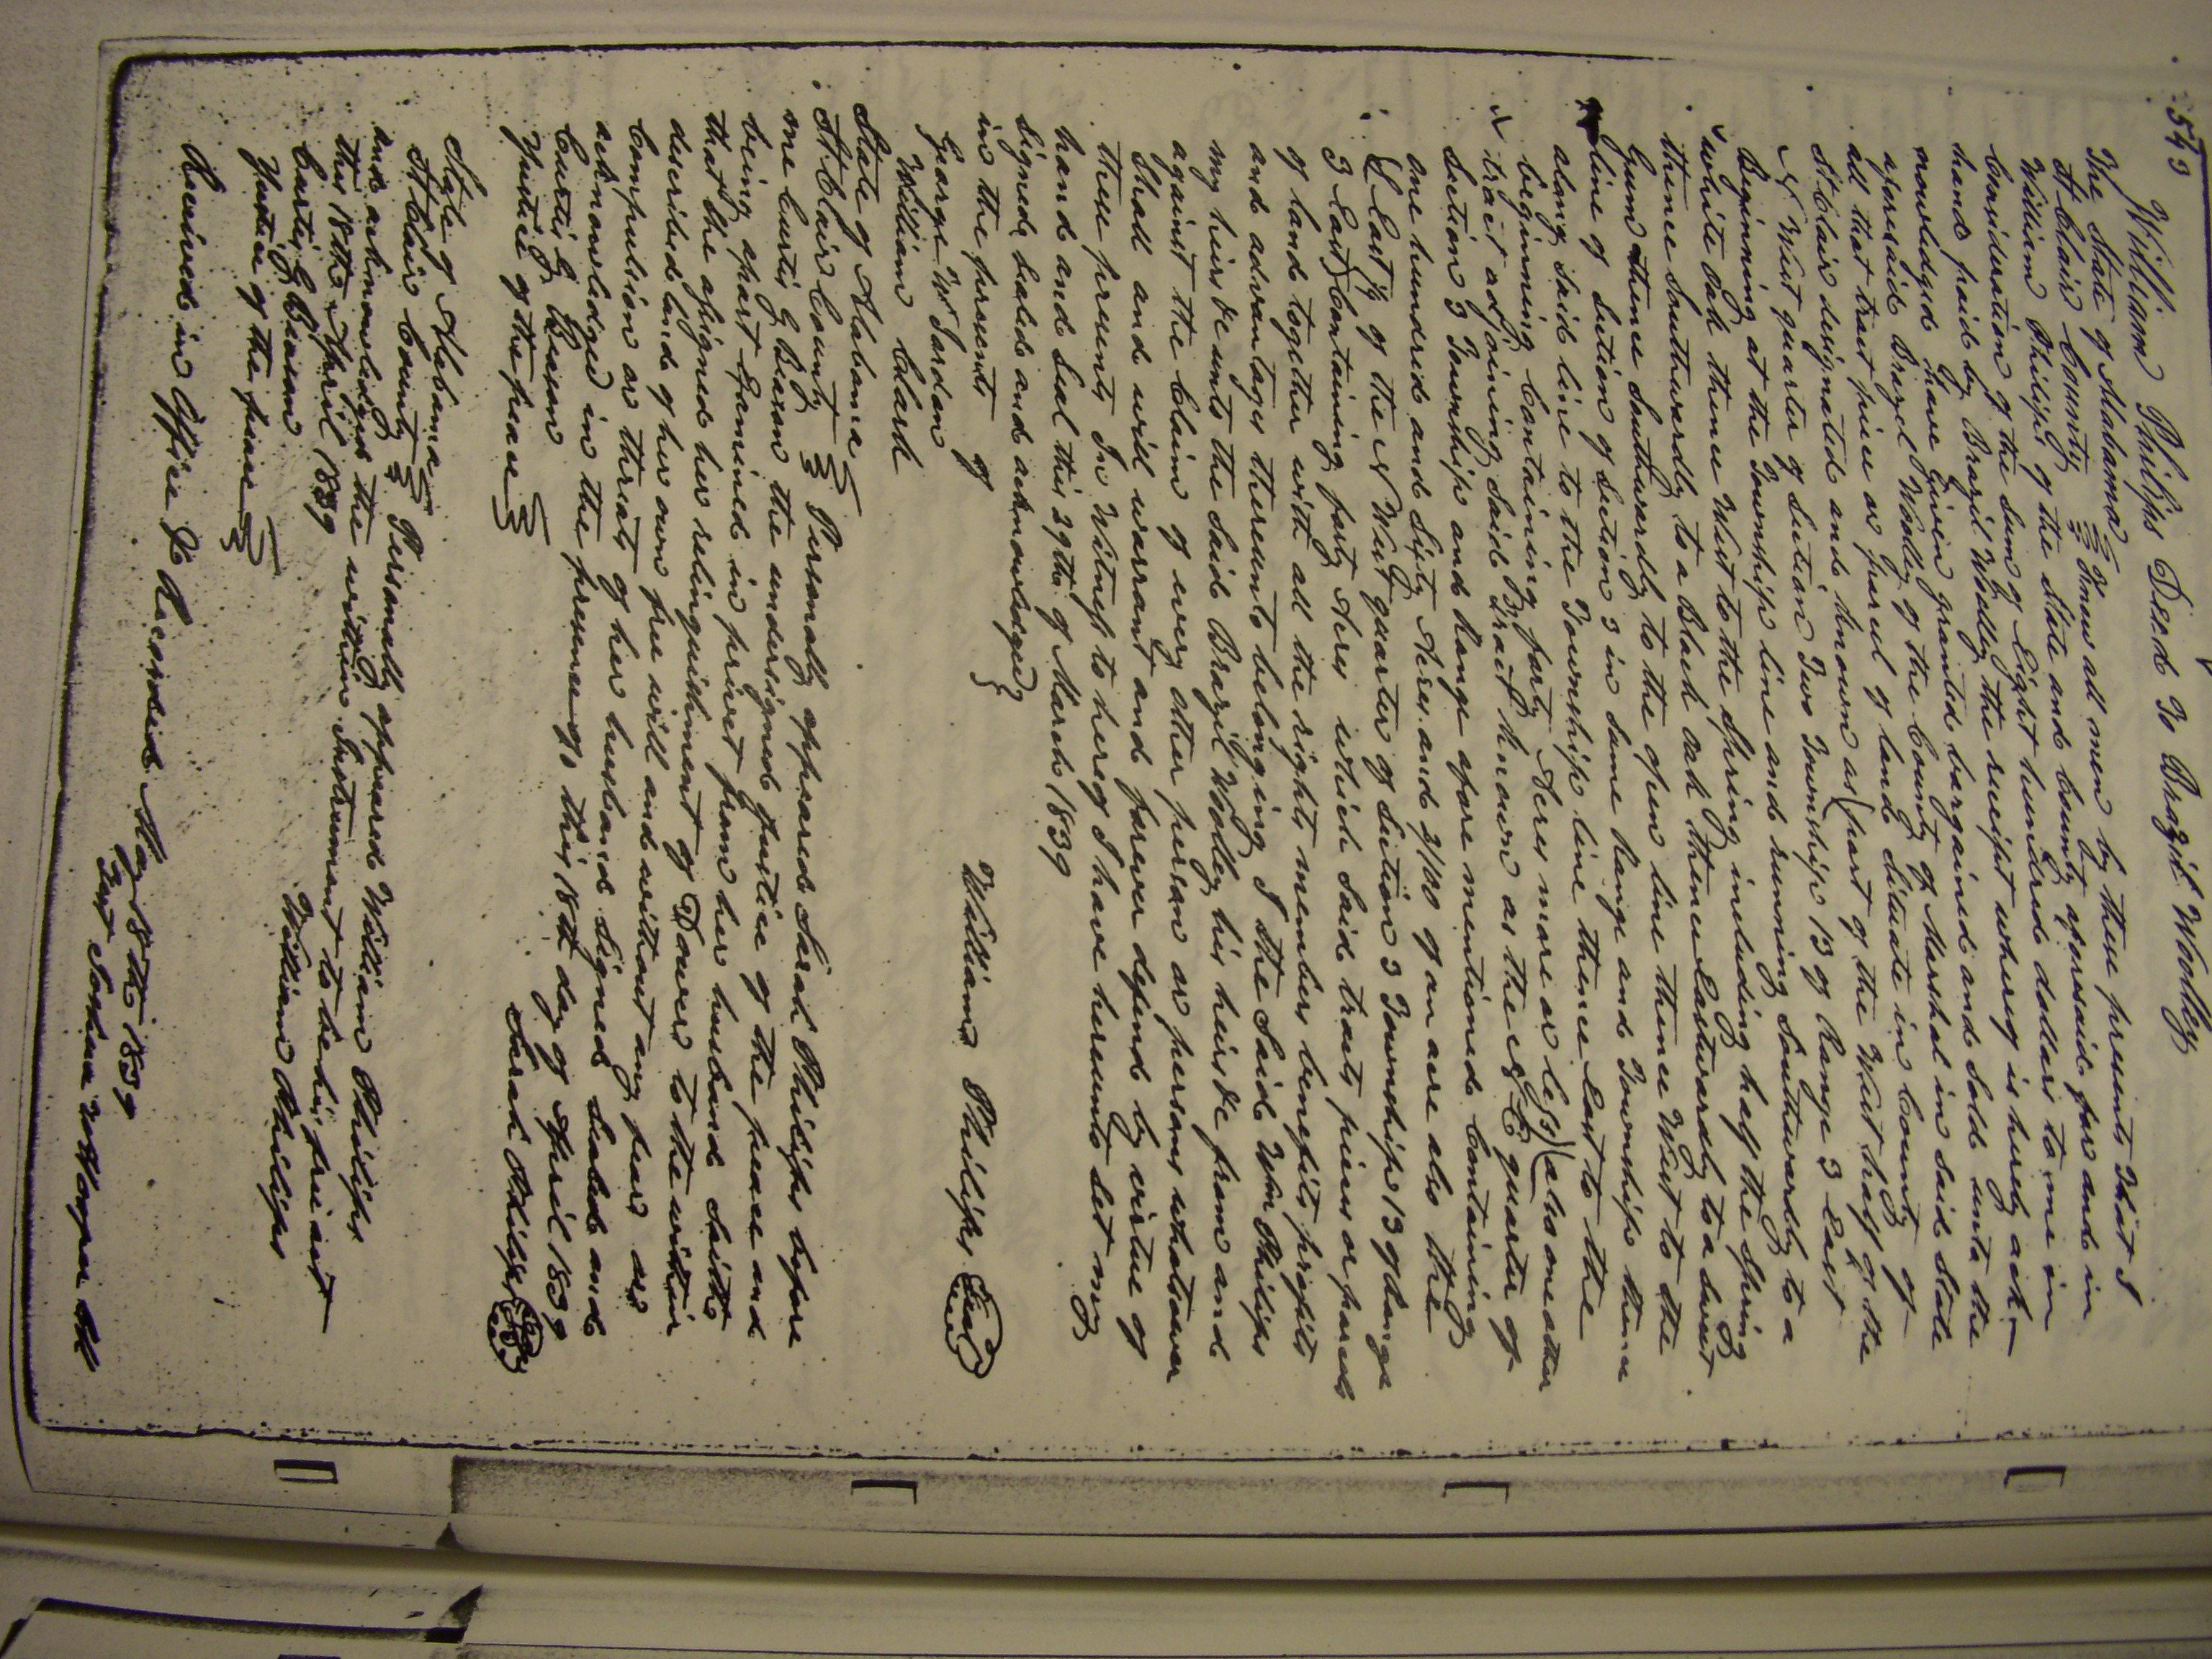 543
William Philips Deed To Brazil Woolley
The State of Alabama
St Clair County Know all men by these presents that I
William Philips of the State and County aforesaid for and in
Consideration of the sum of Eight hundred dollars to me in
hand paid by Brazil Woolley the receipt whereof is hereby ack-
nowledged have Given granted bargained and Sold unto the
aforesaid Brazel Woolley of the County of Marshal in said State
all that tract piece or parcel of land Situate in County of
St Clair designated and known as (part of the West half of the
N West quarter of Section Two Township 13 of Range 3 East
Beginning at the Township line and running Southwardly to a
white Oak thence West to the Spring including half the Spring
thence Southwardly to a Black oak thence Eastwardly to a Sweet
Gum thence Southwardly to the open line thence West to the
line of Section of Section 3 in Same Range and Township thence
along said line to the Township line thence East to the
beginning Containing forty Acres more or less) (also one other
tract adjoining Said tract known as the N E quarter of
Section 3 Township and Range afore mentioned Containing
one hundred and Sixty Acres and 3/100 of an acre also the
S East ¼ of the N West quarter of Section 3 Township 13 of Range
3 East Containing forty Acres which Said tracts pieces or parcels
of land together with all the rights members benefits profits
and advantages thereunto belonging I the Said Wm Philips
my heirs &c unto the said Brazil Woolley his heirs &c from and
against the Claim of every other person or persons whatsoever
Shall and will warrant and forever defend by virtue of
these presents In Witness to hereof I have hereunto Set my
hand and Seal this 29th of March 1839
Signed Sealed and acknowledged
in the presents of William Philips Seal
George W Jordon
William Clark
State of Alabama
St Clair County Personally appeared Sarah Philips before
me Curtis G Beason the undersigned Justice of the peace and
being apart Examined in privet from her husband Saith
that she assigned her relinquishment of Dower to the within
described land of her own free will and without any fear or
Compulsion or threats of her husband Signed Sealed and
acknowledged in the presence of this 18th day of April 1839
Curtis G Beason Sarah Philips Seal
Justice of the peace
State of Alabama
St Clair County Personally appeared William Philips
and acknowledged the within Instrument to be his free act
this 18th April 1839 William Philips
Curtis G Beason
Justice of the peace
Received in Office & Recorded May 18th 1839
Test Joshua W Hooper Clk